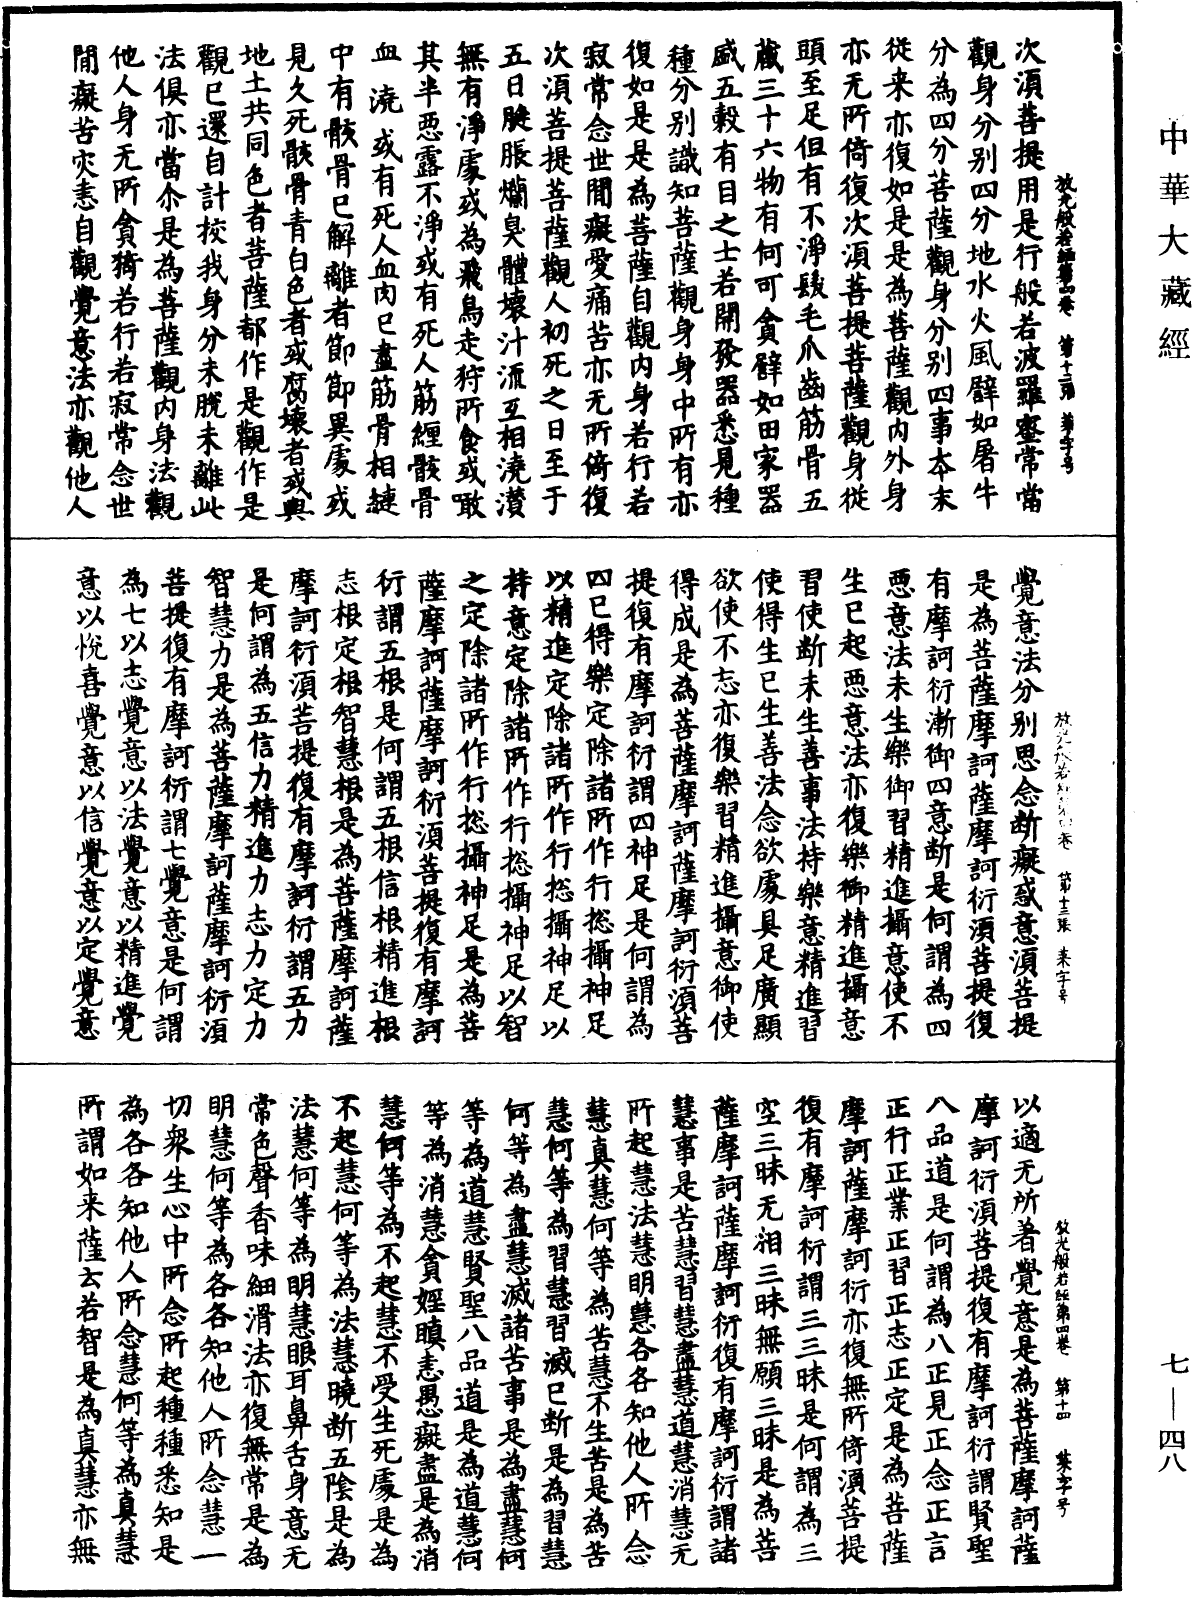 中華大藏經
放光般若經第四卷 第十二張 菜字号
次湏菩提用是行般若波羅蜜常當
觀身分别四分地水火風譬如屠牛
分為四分菩薩觀身分别四事本末
從来亦復如是是為菩薩觀内外身
亦无所倚復次湏菩提菩薩觀身從
頭至足但有不淨髮毛爪齒筋骨五
藏三十六物有何可貪譬如田家器
盛五穀有目之士若開發器悉見種
種分别識知菩薩觀身身中所有亦
復如是是為菩薩自觀内身若行若
寂常念世間癡愛痛苦亦无所倚復
次湏菩提菩薩觀人初死之日至于
五日膖脹爛臭體壞汁流互相澆灒
無有淨處或為飛鳥走狩所食或噉
其半惡露不淨或有死人筋纏骸骨
血澆或有死人血肉已盡筋骨相連
中有骸骨已解離者節節異處或
見久死骸骨青白色者或腐壞者或與
地土共同色者菩薩都作是觀作是
觀已還自計挍我身分未脫未離此
法俱亦當尒是為菩薩觀内身法觀
他人身无所貪猗若行若寂常念世
間癡苦灾恚自觀覺意法亦觀他人
覺意法分别思念断癡惑意湏菩提
是為菩薩摩訶薩摩訶衍湏菩提復
有摩訶衍漸御四意断是何謂為四
惡意法未生樂御習精進攝意使不
生已起惡意法亦復樂御精進攝意
習使断未生善事法持樂意精進習
使得生已生善法念欲處具足廣顯
欲使不忘亦復樂習精進攝意御使
得成是為菩薩摩訶薩摩訶衍湏菩
提復有摩訶衍謂四神足是何謂為
四已得樂定除諸所作行惣攝神足
以精進定除諸所作行惣攝神足以
持意定除諸所作行惣攝神足以智
之定除諸所作行惣攝神足是為菩
薩摩訶薩摩訶衍湏菩提復有摩訶
衍謂五根是何謂五根信根精進根
志根定根智慧根是為菩薩摩訶薩
摩訶衍湏菩提復有摩訶衍謂五力
是何謂為五信力精進力志力定力
智慧力是為菩薩摩訶薩摩訶衍湏
菩提復有摩訶衍謂七覺意是何謂
為七以志覺意以法覺意以精進覺
意以悅喜覺意以信覺意以定覺意
放光般若經第四卷 第十四 菜字号
以適无所著覺意是為菩薩摩訶薩
摩訶衍湏菩提復有摩訶衍謂賢聖
八品道是何謂為八正見正念正言
正行正業正習正志正定是為菩薩
摩訶薩摩訶衍亦復無所倚湏菩提
復有摩訶衍謂三三昧是何謂為三
空三昧无相三昧無願三昧是為菩
薩摩訶薩摩訶衍復有摩訶衍謂諸
慧事是苦慧習慧盡慧道慧消慧无
所起慧法慧明慧各各知他人所念
慧真慧何等為苦慧不生苦是為苦
慧何等為習慧習滅已断是為習慧
何等為盡慧滅諸苦事是為盡慧何
等為道慧賢聖八品道是為道慧何
等為消慧貪婬瞋恚愚癡盡是為消
慧何等為不起慧不受生死處是為
不起慧何等為法慧曉断五陰是為
法慧何等為明慧眼耳鼻舌身意无
常色聲香味細滑法亦復無常是為
明慧何等為各各知他人所念慧一
切衆生心中所念所起種種悉知是
為各各知他人所念慧何等為真慧
所謂如来薩云若智是為真慧亦無
七—四八